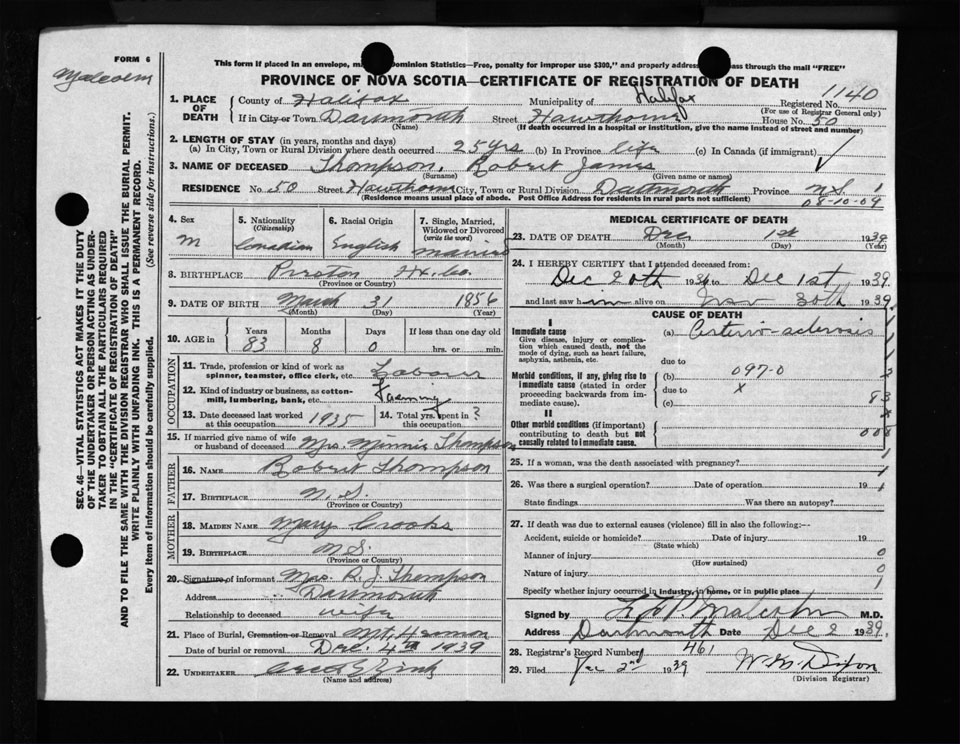 FORM 6
This form if placed in an envelope, ma Dominion Statistics—Free, penalty for improper use $300," and properly addre ass through the mail "FREE"
Malcolm
PROVINCE OF NOVA SCOTIA—CERTIFICATE OF REGISTRATION OF DEATH
1140
1. PLACE OF DEATH
County of Halifax Municipality of Halifax Registered No.
(For use of Registrar General only)
If in City or Town Dartmouth Street Hawthorne House No. 50
(Name) (If death occurred in a hospital or institution, give the name instead of street and number)
2. LENGTH OF STAY (in years, months and days)
(a) In City, Town or Rural Division where death occurred 25 yrs (b) In Province life (c) In Canada (if immigrant)
3. NAME OF DECEASED Thompson, Robert James
(Surname) (Given name or names)
RESIDENCE No. 50 Street Hawthorne City, Town or Rural Division Dartmouth Province N.S. 1
(Residence means usual place of abode. Post Office Address for residents in rural parts not sufficient)
08-10-09
4. Sex M
5. Nationality (Citizenship) Canadian
6. Racial Origin English
7. Single, Married, Widowed or Divorced (write the word) Married
8. BIRTHPLACE Preston Hx. Co.
(Province or Country)
9. DATE OF BIRTH March 31 1856
(Month) (Day) (Year)
10. AGE in Years 83 Months 8 Days 0 If less than one day old hrs. or min.
OCCUPATION
11. Trade, profession or kind of work as spinner, teamster, office clerk, etc. Labourer
12. Kind of industry or business, as cotton-mill, lumbering, bank, etc. Farming
13. Date deceased last worked at this occupation 1935
14. Total yrs. spent in 3
15. If married give name of wife or husband of deceased Mrs. Minnie Thompson
FATHER
16. NAME Robert Thompson
17. BIRTHPLACE N.S.
(Province or Country)
MOTHER
18. MAIDEN NAME Mary Crooks
19. BIRTHPLACE N.S.
(Province or Country)
20. Signature of informant Mrs. R. J. Thompson
Address Dartmouth
Relationship to deceased wife
21. Place of Burial, Cremation or Removal Mt. Hermon
Date of burial or removal Dec. 4th 1939
22. UNDERTAKER Zink
(Name and address)
MEDICAL CERTIFICATE OF DEATH
23. DATE OF DEATH Dec 1st 1939
(Month) (Day) (Year)
24. I HEREBY CERTIFY that I attended deceased from:
Dec 20th 1936 to Dec 1st 1939
and last saw him alive on Nov 30th 1939
CAUSE OF DEATH
I
Immediate cause (a) Arterio-sclerosis
Give disease, injury or complication which caused death, not the mode of dying, such as heart failure, asphyxia, asthenia, etc.
due to
Morbid conditions, if any, giving rise to immediate cause (stated in order proceeding backwards from immediate cause).
(b) 097-0
due to x
(c) 83
II
Other morbid conditions (if important) contributing to death but not causally related to immediate cause.
008
25. If a woman, was the death associated with pregnancy? 1
26. Was there a surgical operation? Date of operation 19 1
State findings Was there an autopsy?
27. If death was due to external causes (violence) fill in also the following:—
Accident, suicide or homicide? Date of injury 19
(State which)
Manner of injury 0
(How sustained)
Nature of injury 0
Specify whether injury occurred in industry, in home, or in public place 1
Signed by Malcolm M.D.
Address Dartmouth Date Dec 2 1939.
28. Registrar's Record Number 461
29. Filed Dec 2nd 1939 W. Dixon
(Division Registrar)
SEC. 46—VITAL STATISTICS ACT MAKES IT THE DUTY
OF THE UNDERTAKER OR PERSON ACTING AS UNDERTAKER
TO OBTAIN ALL THE PARTICULARS REQUIRED
IN THE "CERTIFICATE OF REGISTRATION OF DEATH"
AND TO FILE THE SAME WITH THE DIVISION REGISTRAR WHO SHALL ISSUE THE BURIAL PERMIT.
WRITE PLAINLY WITH UNFADING INK. THIS IS A PERMANENT RECORD.
Every item of information should be carefully supplied. (See reverse side for instructions.)